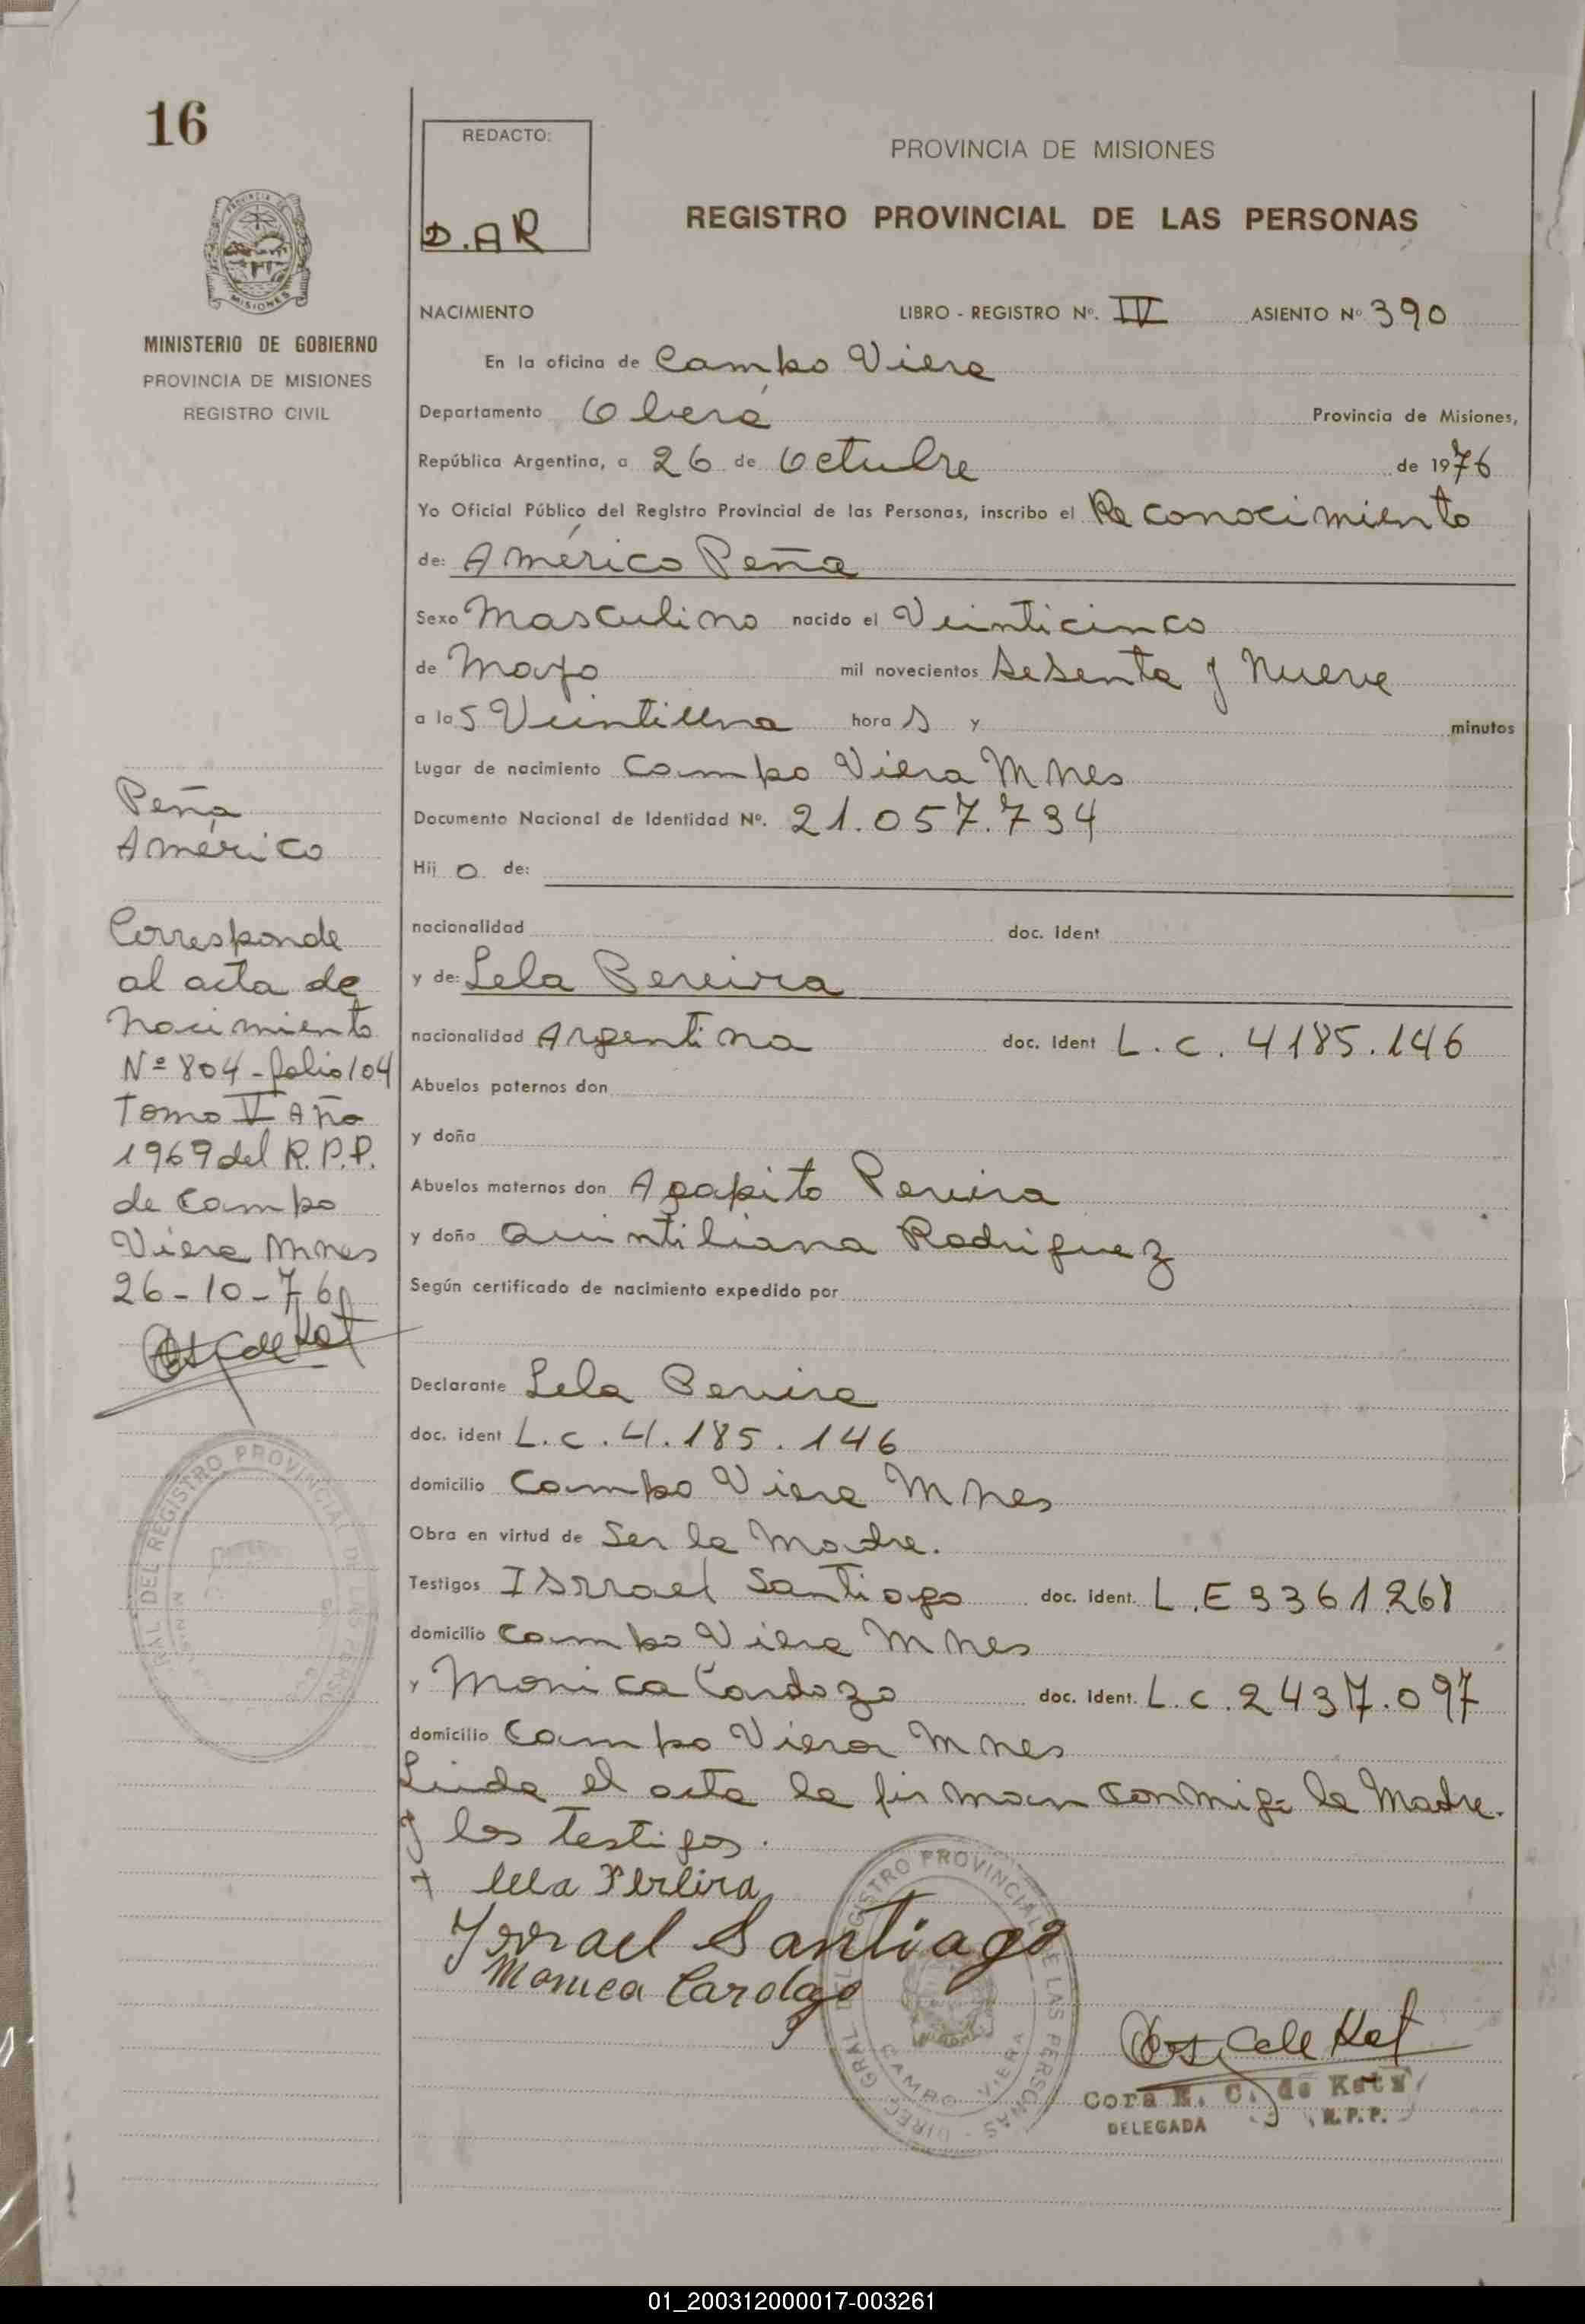 16
MINISTERIO DE GOBIERNO
PROVINCIA DE MISIONES
REGISTRO CIVIL
Peña
Américo
Corresponde
al acta de
Nacimiento
Nº 804 - folio 104
Tomo V Año
1969 del R.P.P.
de Campo
Viera Mnes
26-10-76
REDACTO:
D.AR
PROVINCIA DE MISIONES
REGISTRO PROVINCIAL DE LAS PERSONAS
NACIMIENTO LIBRO - REGISTRO Nº. IV ASIENTO Nº 390
En la oficina de Campo Viera
Departamento Oberá Provincia de Misiones,
República Argentina, a 26 de Octubre de 1976
Yo Oficial Público del Registro Provincial de las Personas, inscribo el Reconocimiento
de: Américo Peña
Sexo Masculino nacido el Veinticinco
de Mayo mil novecientos Sesenta y Nueve
a las Veintiuna horas y minutos
Lugar de nacimiento Campo Viera Mnes
Documento Nacional de Identidad Nº. 21.057.734
Hijo de:
nacionalidad doc. ident
y de: Lela Pereira
nacionalidad Argentina doc. ident L.C. 4185.146
Abuelos paternos don
y doña
Abuelos maternos don Agapito Pereira
y doña Quintiliana Rodriguez
Según certificado de nacimiento expedido por
Declarante Lela Pereira
doc. ident L.C. 4.185.146
domicilio Campo Viera Mnes
Obra en virtud de Ser la Madre.
Testigos Isrrael Santiago doc. ident. L.E 3361.268
domicilio Campo Viera Mnes
y Monica Cardozo doc. ident. L.C. 2437.097
domicilio Campo Viera Mnes
Leida el acta la firman conmigo la Madre.
y los testigos.
Lela Pereira
Isrrael Santiago
Monica Cardozo
DIREC. GRAL DEL REGISTRO PROVINCIAL DE LAS PERSONAS
CAMPO VIERA
Cora E. C. de Katz
DELEGADA R.P.P.
01_200312000017-003261